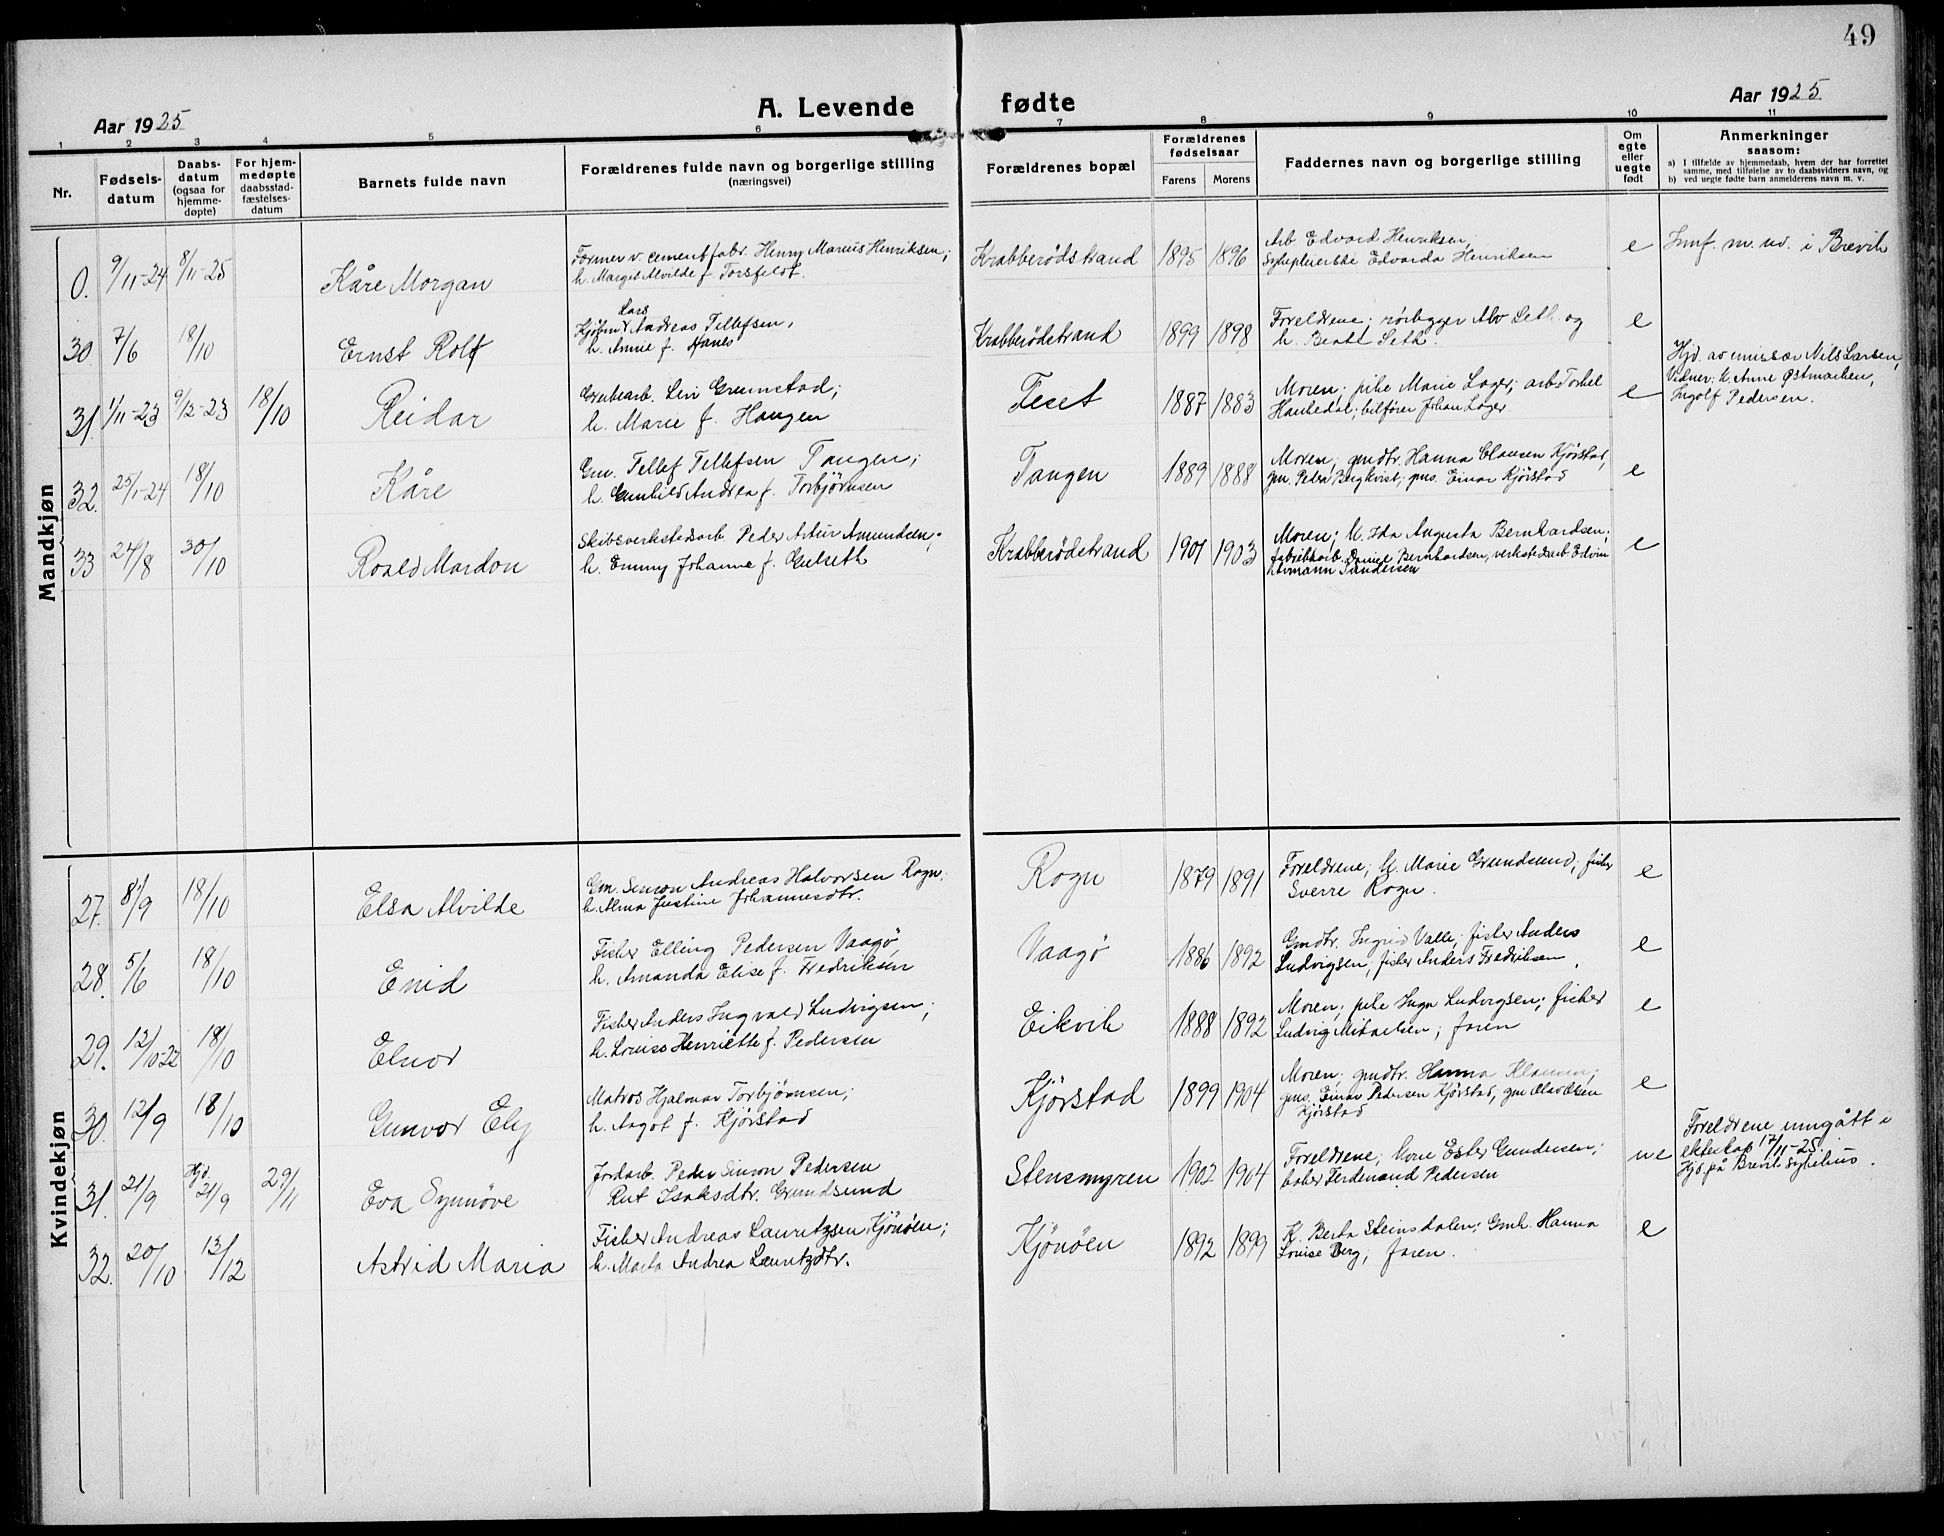 49
Aar 1925
A. Levende fødte
Aar 1925
1 2 3 4 5 6 7 8 9 10 11
Nr.
Fødsels-
datum
Daabs-
datum
(ogsaa for
hjemme-
døpte)
For hjem-
medøpte
daabsstad-
fæstelses-
datum
Barnets fulde navn
Forældrenes fulde navn og borgerlige stilling
(næringsvei)
Forældrenes bopæl
Forældrenes
fødselsaar
Farens Morens
Faddernes navn og borgerlige stilling
Om
egte
eller
uegte
født
Anmerkninger
saasom:
a) I tilfælde av hjemmedaab, hvem der har forrettet
samme, med tilføielse av to daabsvidners navn, og
b) ved uegte fødte barn anmelderens navn m. v.
Mandkjøn
0. 9/11-24 8/11-25 Kåre Morgan
Former v. cementfabr. Henry Marius Henriksen;
h. Margit Alvilde f.
Krabberødstrand 1895 1896
Arb. Edvard Henriksen,
Sykepleierske Edvarda Henriksen
e
Innf. m. nv. i Brevik
30. 7/6 18/10 Ernst Rolf
Lars
Kjøbm. Andreas Tellefsen,
h. Annie f. Hanes
Krabberødstrand 1899 1898
Foreldrene; rørlegger Alv Seth og
h. Seth.
e
31. 1/11-23 9/12-23 18/10 Reidar
Grubearb. Grimstad;
h. Marie f. Haugen
1887 1883
Moren; pike Marie Lager; arb. Torkel
bilfører Johan Lager
e
Hjd. av emissær Nils Larsen,
Vidner: k. Anne Østmarken,
Ingolf Pedersen.
32. 25/1-24 18/10 Kåre
Gm. Tellef Tellefsen Tangen;
h. Gunhild Andrea f. Torbjørnsen
Tangen 1889 1888
Moren; gmdtr. Hanna Clausen Kjørstad,
gm. Peder Bergkvist; gms. Einar Kjørstad
e
33 24/8 30/10 Roald Mardon
Skibsverkstedsarb. Peder Artur Amundsen;
h. Emmy Johanne f. Gulseth
Krabberødstrand 1901 1903
Moren; k. Ida Augusta Bernhardsen;
fabrikkarb. Daniel Bernhardsen, verkstedsarb. Edvin
Sandersen
e
Kvindekjøn
27. 8/9 18/10 Elsa Alvilde
Gm. Simon Andreas Halvorsen Rogn;
h. Alma Justine Johannesdtr.
Rogn 1879 1891
Foreldrene; k. Marie Grundsund; fisker
Sverre Rogn.
e
28. 5/6 18/10 Enid
Fisker Elling Pedersen Vaagø,
h. Amanda Elise f. Fredriksen
Vaagø 1886 1892
Gmdtr. Ingrid Valle; fisker Anders
Ludvigsen; fisker Anders Fredriksen.
e
29. 12/10-22 18/10 Elnor
Fisker Anders Ingvald Ludvigsen;
h. Louise Henriette f. Pedersen
Eikvik 1888 1892
Moren; pike Inga Ludvigsen; fisker
Ludvig Mikaelsen; faren
e
30. 12/9 18/10 Gunvor Ely
Matros Hjalmar Torbjørnsen;
h. Aagot f. Kjørstad
Kjørstad 1899 1904
Moren; gmdtr. Hanna Klausen;
gms. Einar Pedersen Kjørstad, gm. Olav Olsen
Kjørstad
e
31. 21/9 Hjd. 21/9 29/11 Eva Synnøve
Jordarb. Peder Simon Pedersen
Rut Isaksdtr. Grundsund
Stensmyren 1902 1904
Foreldrene; Ester Gundersen;
baker Ferdinand Pedersen
ue
Foreldrene inngått i
ekteskap 17/11-25.
Hjd. på Brevik sykehus.
32. 20/10 13/12 Astrid Maria
Fisker Andreas Lauritzsen Kjønøen;
h. Marta Andrea Lauritzdtr.
Kjönöen 1892 1899
K. Berta Steinsdalen; Gmk. Hanna
Louise Berg; faren.
e